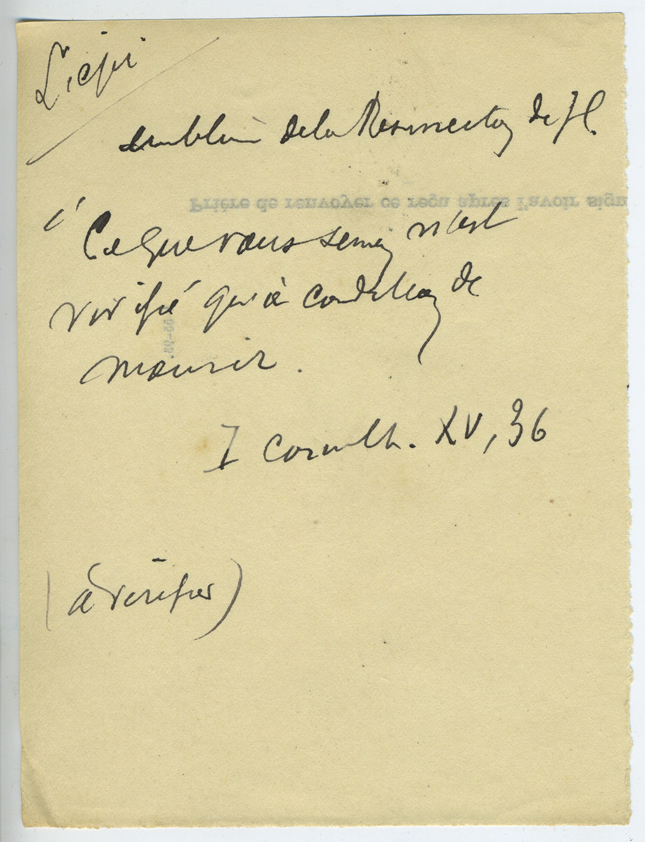 L'épi
emblème de la Résurrection de JC.
Prière de renvoyer ce reçu après l'avoir sign
" Ce que vous semez n'est
vivifié qu'à condition de
mourir.
I Corinth. XV, 36
(à vérifier)